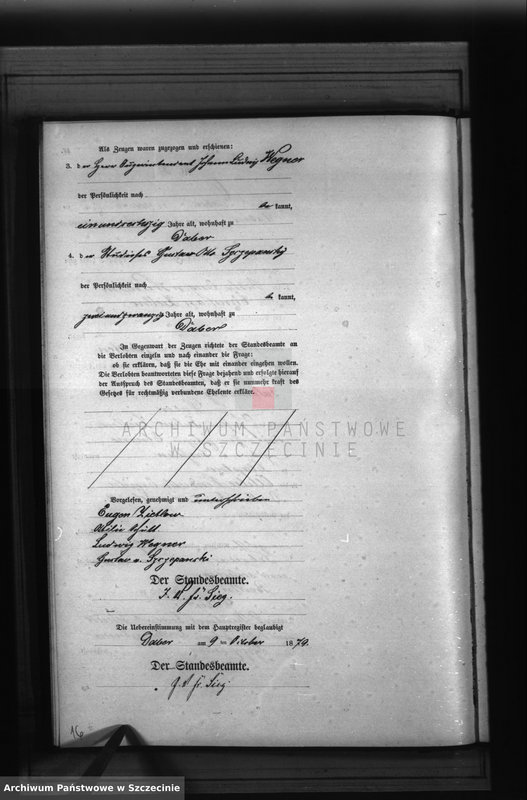 Als Zeugen waren zugezogen und erschienen:
3. der Herr Superintendent Johann Ludwig Wegner
der Persönlichkeit nach
be kannt,
einundvierzig Jahre alt, wohnhaft zu
Daber
4. der Gustav Otto
der Persönlichkeit nach
be kannt,
zweiundzwanzig Jahre alt, wohnhaft zu
Daber
In Gegenwart der Zeugen richtete der Standesbeamte an
die Verlobten einzeln und nach einander die Frage:
ob sie erklären, daß sie die Ehe mit einander eingehen wollen.
Die Verlobten beantworteten diese Frage bejahend und erfolgte hierauf
der Ausspruch des Standesbeamten, daß er sie nunmehr kraft des
Gesetzes für rechtmäßig verbundene Eheleute erkläre.
ARCHIWUM PAŃSTWOWE
W SZCZECINIE
Vorgelesen, genehmigt und unterschrieben
Eugen Zietlow
Ludwig Wegner
Gustav v.
Der Standesbeamte.
Sieg.
Die Uebereinstimmung mit dem Hauptregister beglaubigt
Daber am 9 ten October 1879
Der Standesbeamte.
Sieg
16
Archiwum Państwowe w Szczecinie